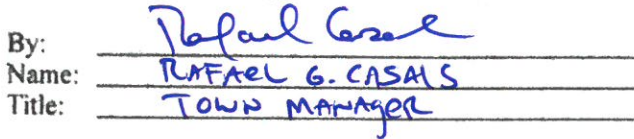 By: Rafael Casals
Name: RAFAEL G. CASALS
Title: TOWN MANAGER